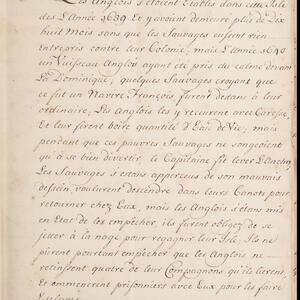 Les Anglois s'etoient Etablis dans cette Isle
des L'année 1639 Et y avoient demeure plus de Dix
huit Mois sans que les Sauvages eussent rien
Entrepris contre leur Colonie, mais L'année 1640
un Vaisseau Anglois ayant ete pris du calme devant
La Dominique, quelques Sauvages croyant que
ce fut un Navire François furent dedans a leur
ordinaire, Les Anglois les y recurent avec Caresse,
Et leur firent boire quantité d'Eau de Vie; mais
pendant que ces pauvres Sauvages ne songeoient
qu'à se bien devertir, le Capitaine fit lever L'anchre
Les Sauvages s'etans appercus de son mauvais
dessein voulurent descendre dans leurs Canots pour
retourner chez Eux, mais les Anglois s'etans mis
en Etat de les empêcher, ils furent obligez de se
jetter à la nage pour regagner leur Isle, Ils ne
pûrent pourtant empêcher que les Anglois ne
retinssent quatre de leurs Compagnons qu'ils lierent,
Et emmenerent prisonniers avec Eux pour les faire
Esclaves